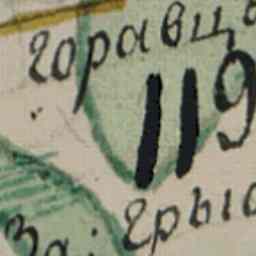 горавц
119
За. грыс